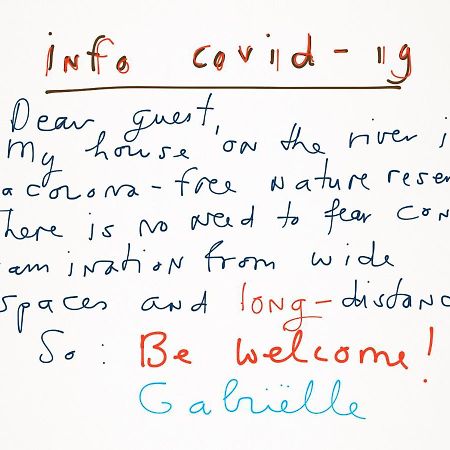 info coviid-19
Dear guest,
My house on the river i
a corona-free nature reser
here is no need to fear con
amination from wide
spaces and long-distanc
So: Be welcome!
Gabriëlle